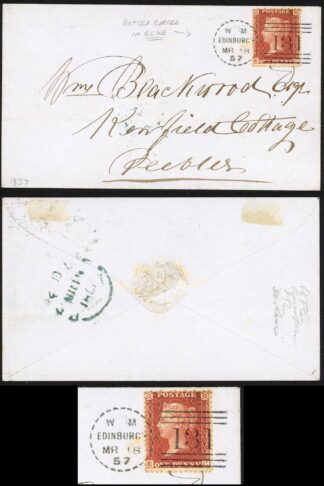 DOTTED CIRCLE
IN BLUE →
W M
EDINBURGH
MR 18
57
POSTAGE
131
Wm Blackwood Esqr
Kerrfield Cottage
Peebles
1857
MR 19
W M
EDINBURGH
MR 18
57
POSTAGE
131
ONE PENNY